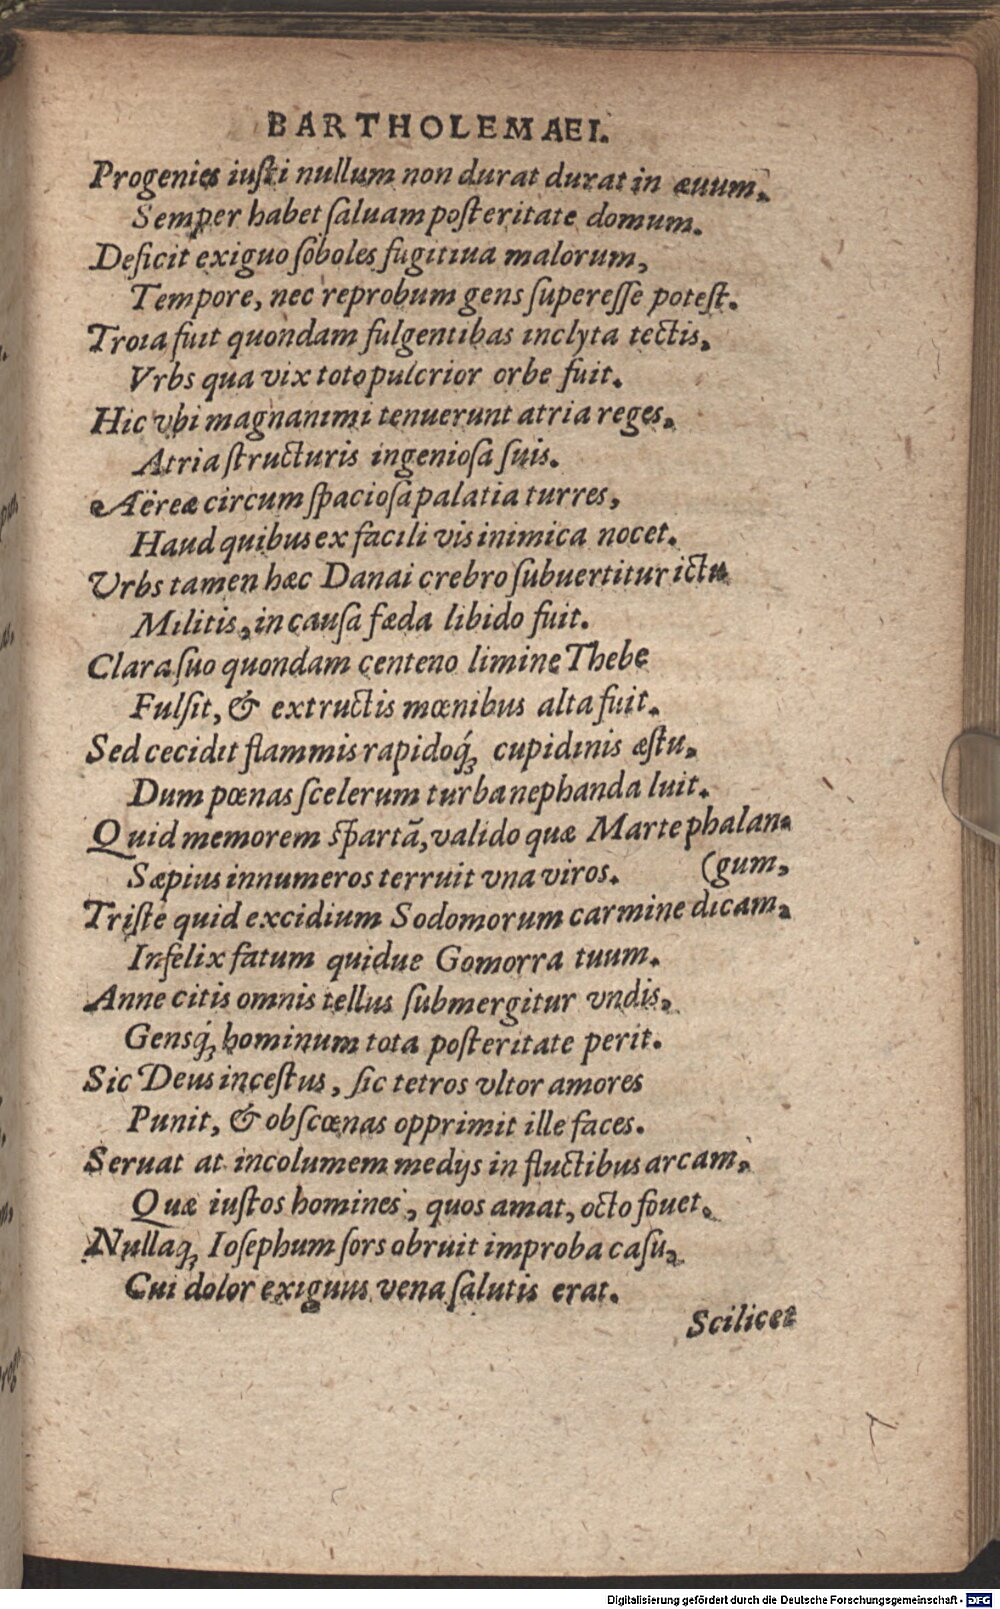 BARTHOLEMAEI.
Progenies iusti nullum non durat durat in æuum,
Semper habet saluam posteritate domum.
Deficit exiguo soboles fugitiua malorum,
Tempore, nec reprobum gens superesse potest.
Troia fuit quondam fulgentibas inclyta tectis,
Vrbs qua vix toto pulcrior orbe fuit.
Hic vbi magnanimi tenuerunt atria reges,
Atria structuris ingeniosa suis.
Aëreæ circum spaciosa palatia turres,
Haud quibus ex facili vis inimica nocet.
Vrbs tamen hæc Danai crebro subuertitur ictu
Militis, in causa fæda libido fuit.
Clara suo quondam centeno limine Thebe
Fulsit, & extructis mœnibus alta fuit.
Sed cecidit flammis rapidoq́; cupidinis æstu,
Dum pœnas scelerum turba nephanda luit.
Quid memorem spartā, valido quæ Marte phalan-
Sæpius innumeros terruit vna viros. (gum,
Triste quid excidium Sodomorum carmine dicam,
Infelix fatum quidue Gomorra tuum.
Anne citis omnis tellus submergitur vndis,
Gensq́; hominum tota posteritate perit.
Sic Deus incestus, sic tetros vltor amores
Punit, & obscœnas opprimit ille faces.
Seruat at incolumem medijs in fluctibus arcam,
Quæ iustos homines, quos amat, octo fouet,
Nullaq; Iosephum sors obruit improba casu,
Cui dolor exiguus vena salutis erat.
Scilicet
Digitalisierung gefördert durch die Deutsche Forschungsgemeinschaft - DFG